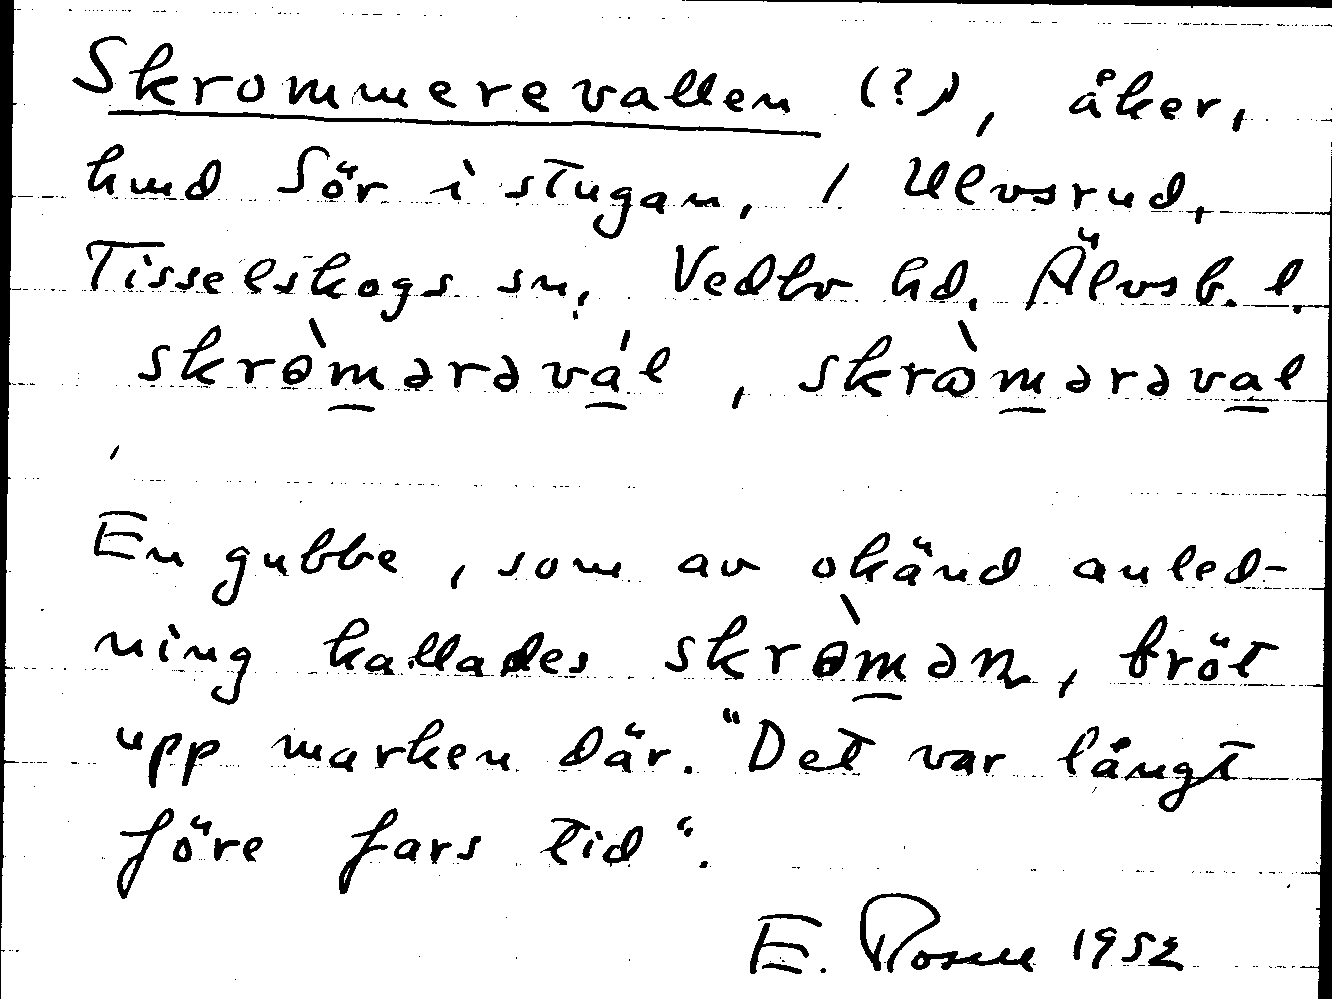 Skrommerevallen (?), åker,
hmd Sör i stugan, 1 Ulvsrud,
Tisselskogs sn, Vedbo hd. Älvsb. l.
skròm̲ərəvá̲l, skròm̲ərəva̲l
En gubbe, som av okänd anled-
ning kallades skròm̲ən, bröt
upp marken där. "Det var långt
före fars tid".
E. Rosell 1952